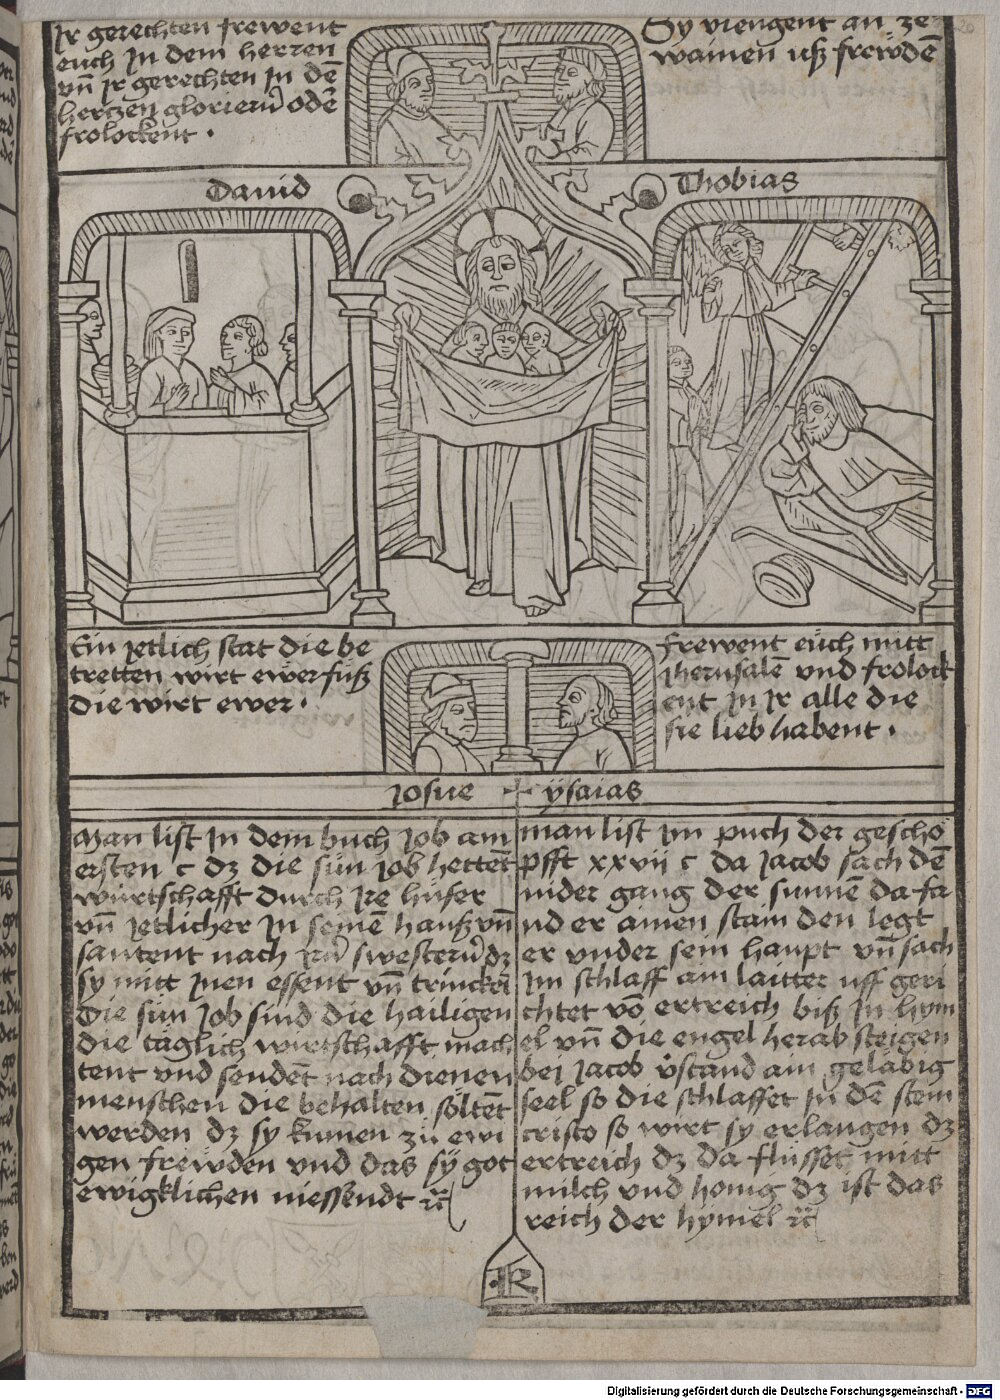 Ir gerechten frewent
euch in dem herren
vn̄ ir gerechten in dē
hertzen glorierñ oder
frolockent ·
Sy viengent an ze
wainen uß frewdē
Dauid
Thobias
Ein ietlich stat die be
tretten wirt ewer fuͤß
die wirt ewer ·
frewent eu̇ch mitt
iherusalē und frolock
ent in ir alle die
sie lieb habent ·
Josue
ysaias
Man list in dem buch iob am
ersten c dz die su̇n iob hettēt
wu̇rtschafft durch ire hu̇ser
vn̄ ietlicher in seinē hauß vn̄
santent nach irñ swesterñ dz
sy mitt inen essent vn̄ trinckē
die su̇n iob sind die hailigen
die taͤglich wirtschafft mach
tent vnd sendēt nach dienen
menschen die behalten soͤltēt
werden dz sy kumen zuͦ ewi
gen frewden vnd das sy got
ewigklichen niessendt ꝛc̄
man list im puch der geschoͤ
pfft xxvii c da iacob sach dē
nider gang der sunnē da fa
nd er ainen stain den legt
er vnder sein haupt vn̄ sach
im schlaff ain laitter uff geri
chtet võ ertreich biß in hym
el vn̄ die engel herab steigen
bei iacob v̓stand ain gelaͤbig
seel so die schlaffet in dē stein
cristo so wirt sy erlangen dz
ertreich dz da flusset mitt
milch vnd honig dz ist das
reich der hymel ꝛc̄
K
Digitalisierung gefördert durch die Deutsche Forschungsgemeinschaft - DFG